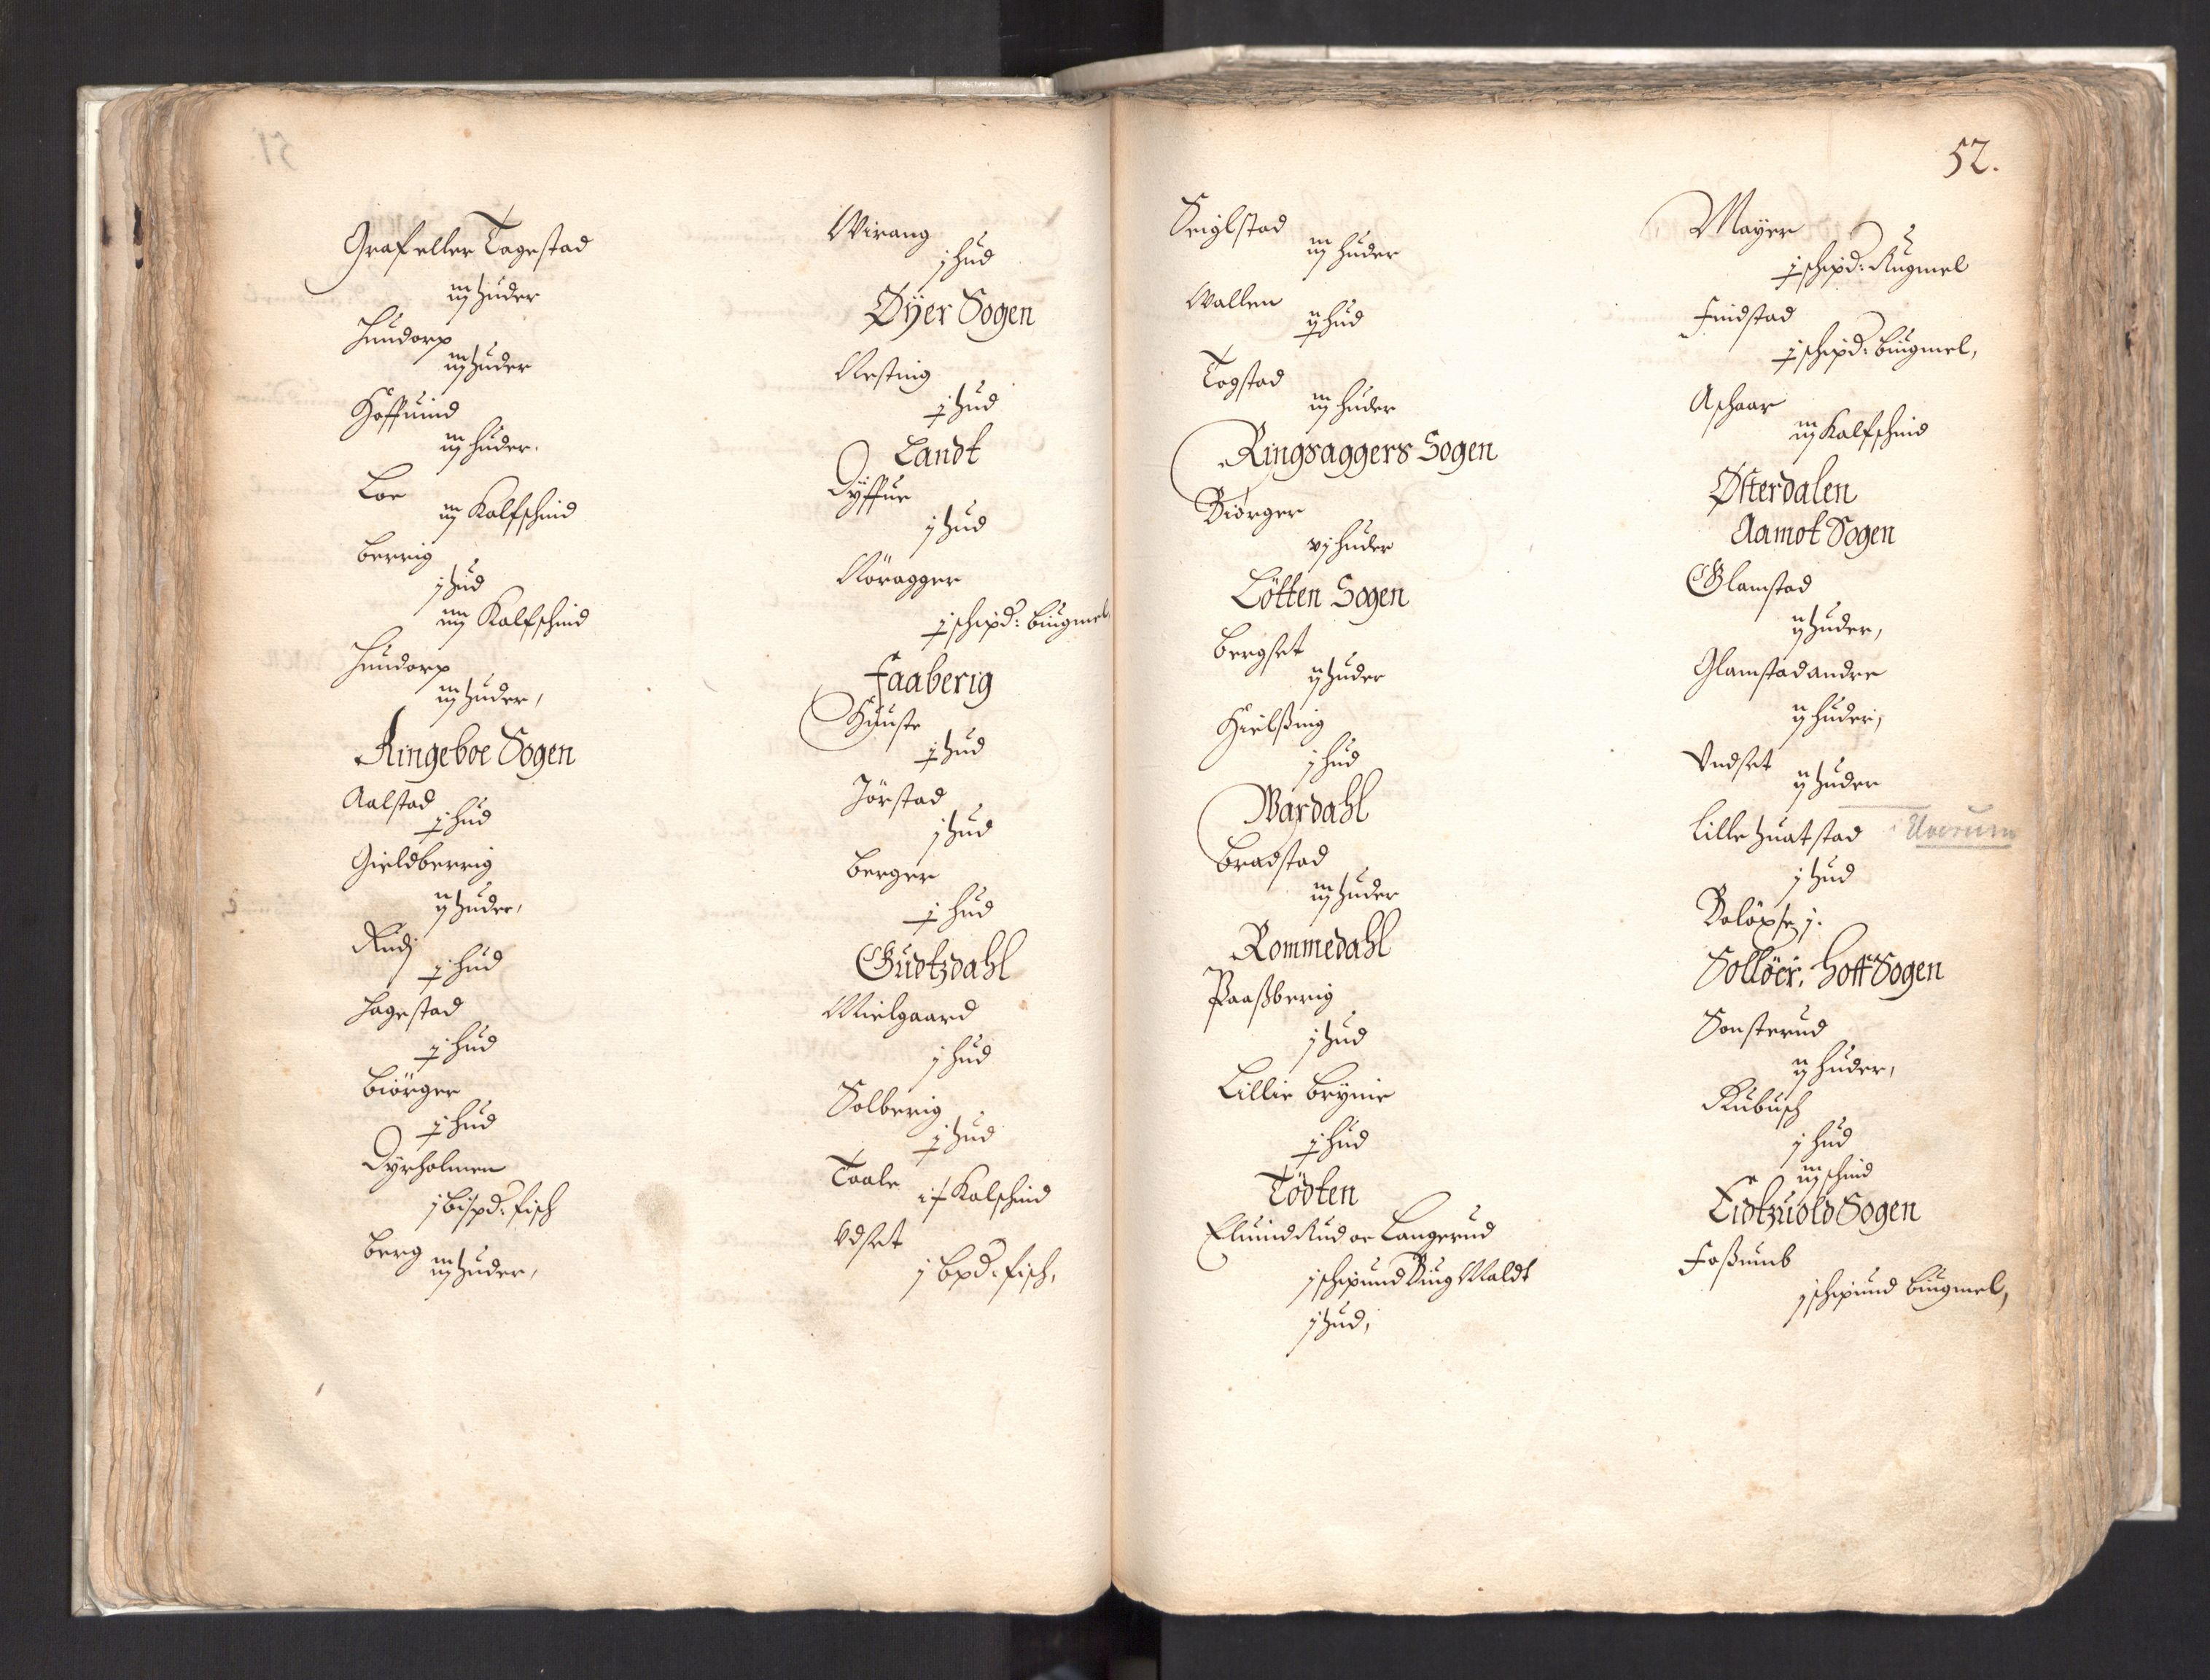 Graf eller Tagestad
iij Huder
Hundorp
iij Huder
Hoffuind
iij Huder.
Loe
iij Kalfschind
Berrig
j Hud
iiij Kalfschind
Hundorp
iij Huder,
Ringeboe Sogen
Aalstad
j Hud
Gieldberrig
ij Huder,
Rudj
j Hud
Hagestad
j Hud
Biörger
j Hud
Dyrholmen
j Bispd: fisch
Berg
iij Huder,
Wirang
j Hud
Øÿer Sogen
Resting
j Hud
Landt
Dÿffue
j Hud
Röragger
j schipd: Bÿgmel,
Faaberig
j Hud
Jörstad
j Hud
Berger
j Hud
Gudtzdahl
Mielgaard
j Hud
Solberig
j Hud
Taale
Kalschind
Vdset
j Bpd: fisch,
52.
Seiglstad
iij Huder
Wallen
ij Hud
Togstad
iij Huder
Ringsaggers Sogen
Biörger
vj Huder
Lötten Sogen
Bergset
ij Huder
Hielßing
j Hud
Wardahl
Bradstad
iij Huder
Rommedahl
Paaßberig
j Hud
Lillie Brÿnie
j Hud
Tödten
Eluind Rud oc Langerud
j schipund Biug Maldt
j Hud,
Mayer
j schipd: Rugmel
Findstad
j schipd: Bÿgmel,
Aschaar
iij Kalfschind
Østerdalen
Aamot Sogen
Glamstad
ij Huder,
Glamstad andre
ij Huder,
Vndset
ij Huder
Lille Huatstad
j Hud
Solöer, Hoff Sogen
Sonsterud
ij Huder,
Kubusch
j Hud
iij schind
Eidtzuold Sogen
Foßumb
j schipund Bÿgmel,